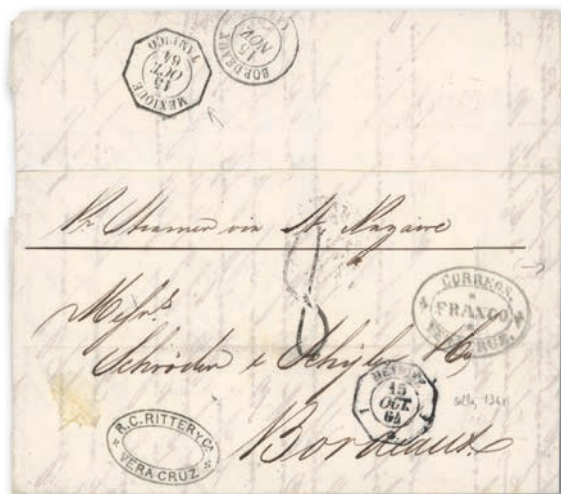 MEXIQUE
15
OCT.
64
TAMPICO
BORDEAUX
15
NOV.
Pr Steamer via St. Nazaire
8
CORREOS.
FRANCO
VERACRUZ.
Messrs
Schröder & Schÿler & Co
MEXIQUE
15
OCT.
64
1
R.C. RITTER Y Ca.
VERA CRUZ
Bordeaux